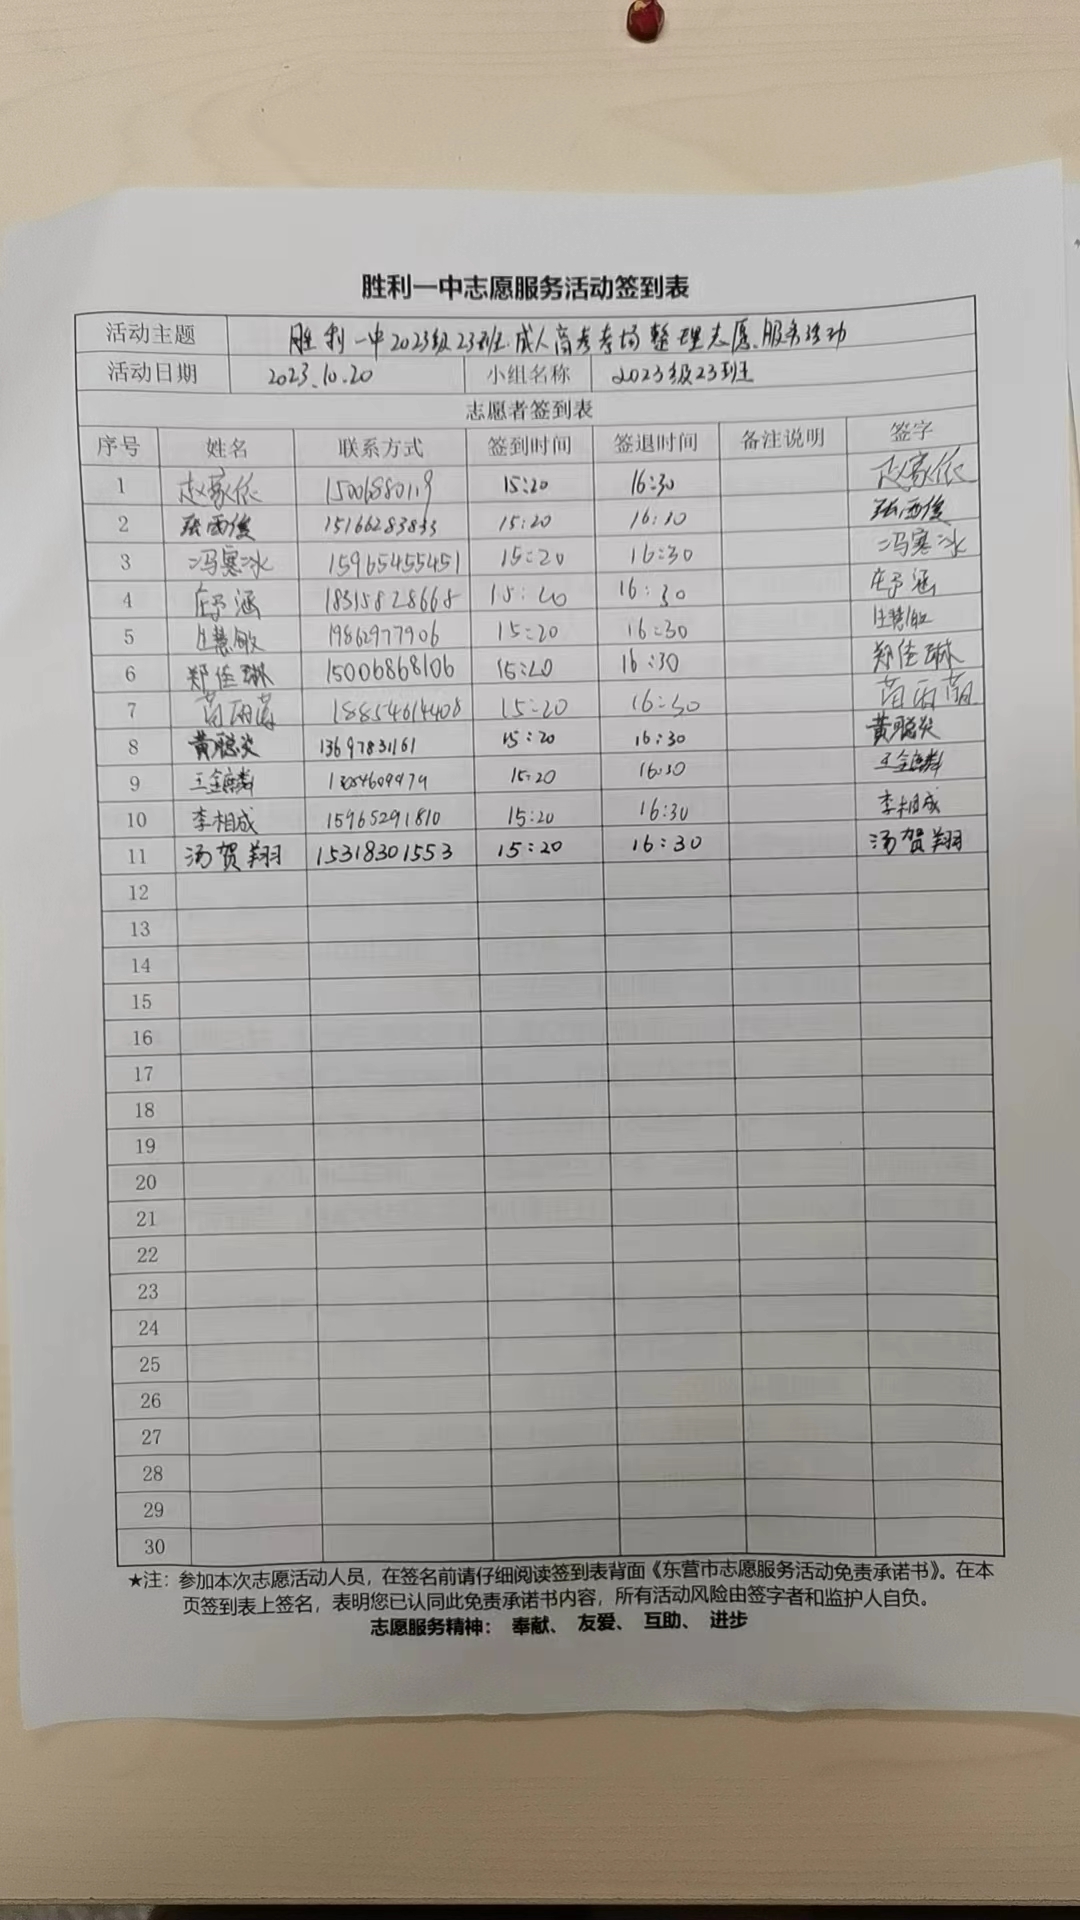 胜利一中志愿服务活动签到表
活动主题 胜利一中2023级23班成人高考考场整理志愿服务活动
活动日期 2023.10.20 小组名称 2023级23班
志愿者签到表
序号 姓名 联系方式 签到时间 签退时间 备注说明 签字
1 赵家依 15:20 16:30 赵家依
2 张西俊 15166283833 15:20 16:30 张西俊
3 冯寒冰 15965455451 15:20 16:30 冯寒冰
4 庄予涵 18315828668 15:20 16:30 庄予涵
5 慧敏 19862977906 15:20 16:30 慧敏
6 郑佳琳 15006868106 15:20 16:30 郑佳琳
7 18854614408 15:20 16:30
8 黄聪炎 13697831161 15:20 16:30 黄聪炎
9 王金麟 15:20 16:30 王金麟
10 李相成 15965291810 15:20 16:30 李相成
11 汤贺翔 15318301553 15:20 16:30 汤贺翔
12
13
14
15
16
17
18
19
20
21
22
23
24
25
26
27
28
29
30
★注：参加本次志愿活动人员，在签名前请仔细阅读签到表背面《东营市志愿服务活动免责承诺书》。在本
页签到表上签名，表明您已认同此免责承诺书内容，所有活动风险由签字者和监护人自负。
志愿服务精神： 奉献、 友爱、 互助、 进步